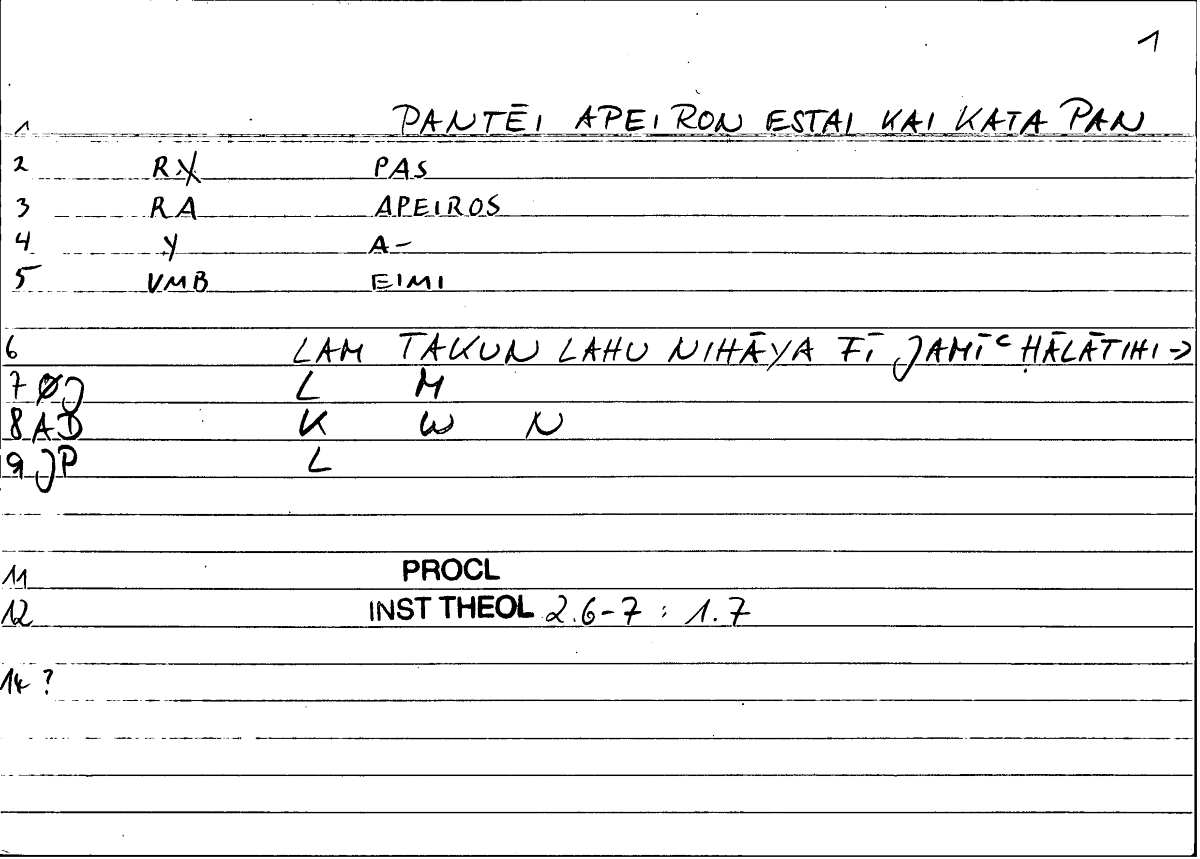 1
1 PANTĒI APEIRON ESTAI KAI KATA PAN
2 RX PAS
3 RA APEIROS
4 Y A-
5 VMB EIMI
6 LAM TAKUN LAHU NIHĀYA FĪ JAMĪᶜ ḤĀLĀTIHI →
7 ØJ L M
8 AD K W N
9 JP L
11 PROCL
12 INST THEOL 2.6-7 : 1.7
14 ?